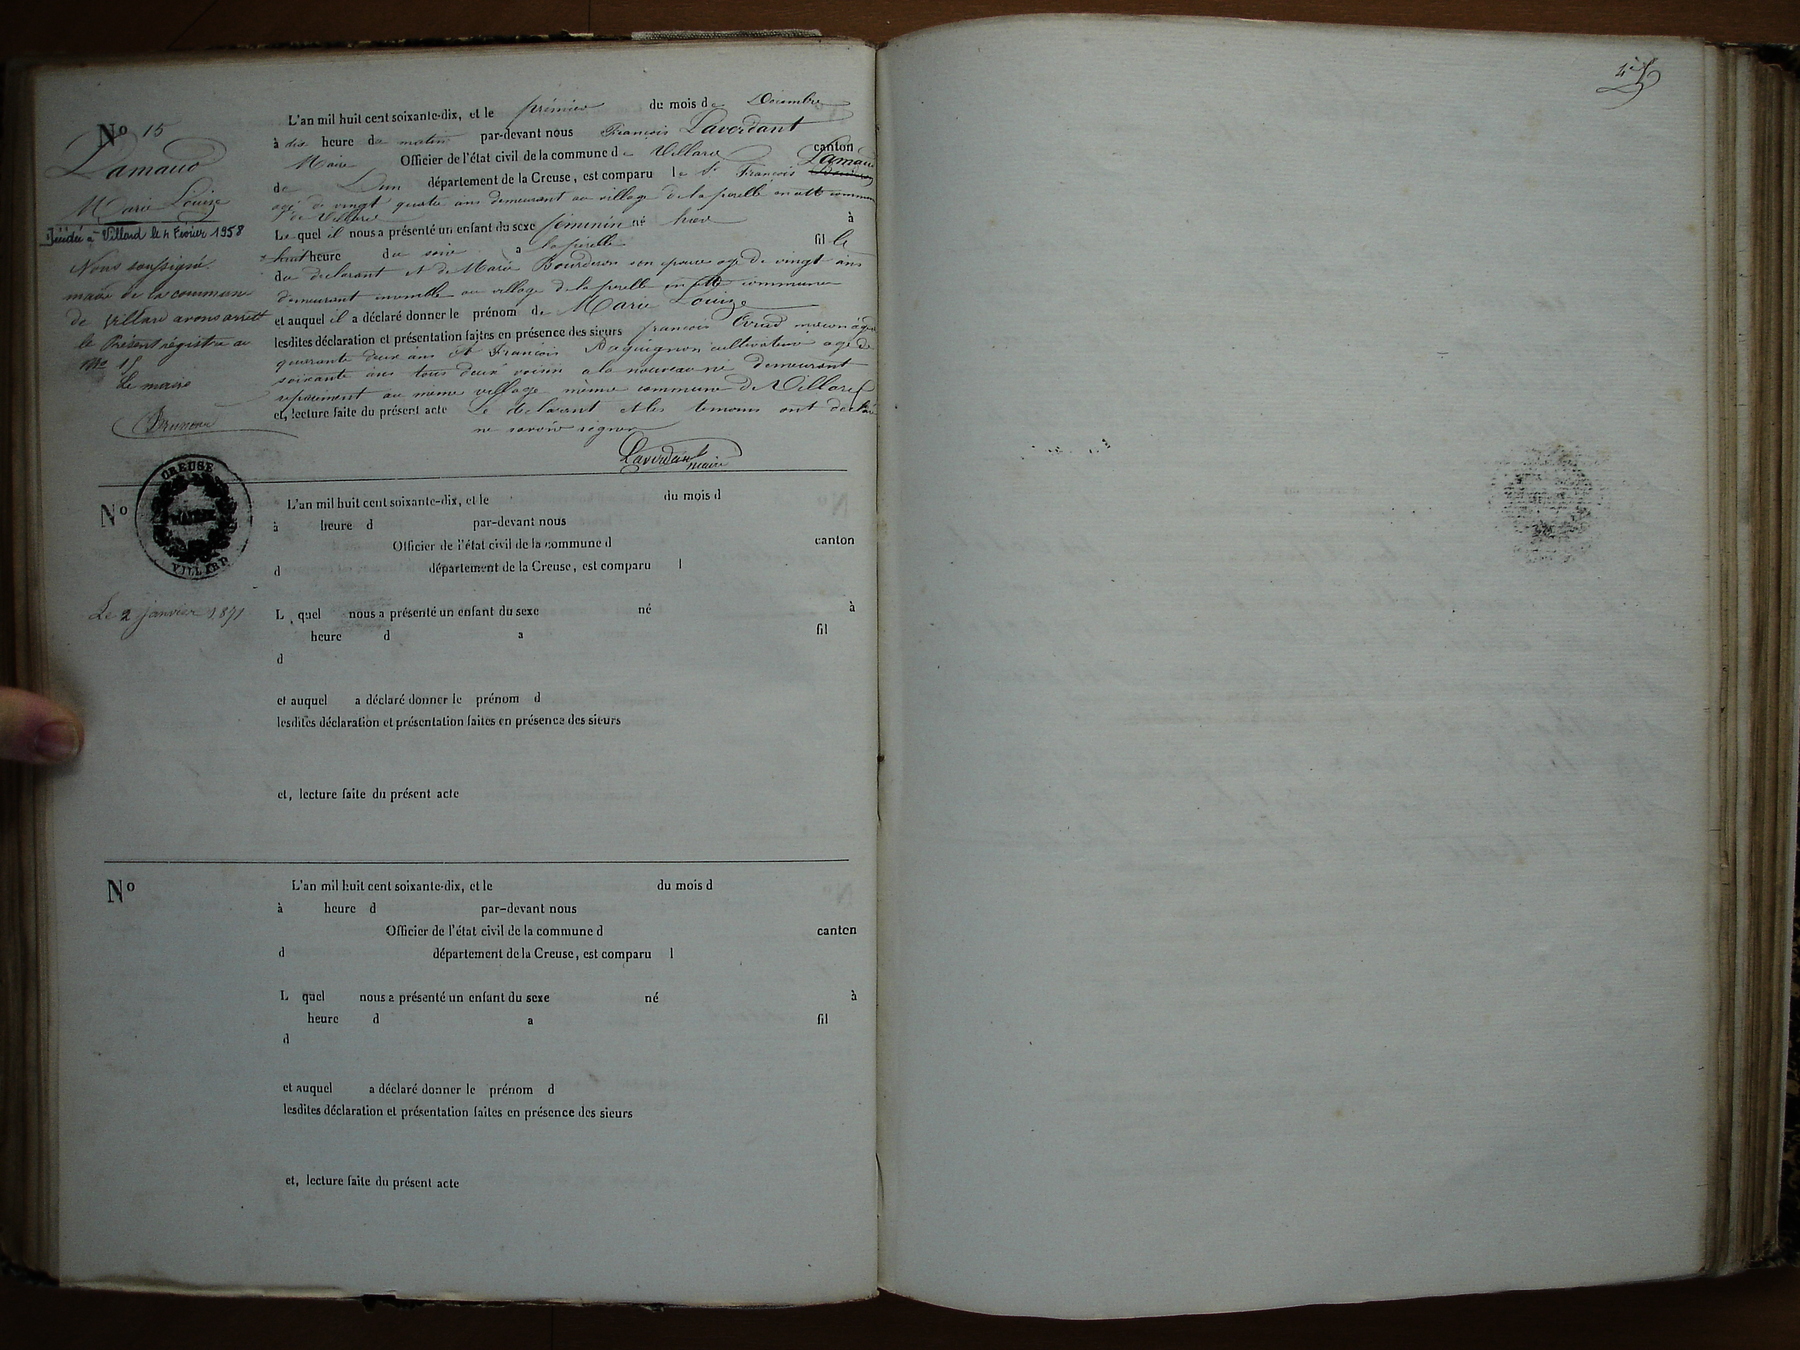 N° 15
Lamaud
Marie Louize
Décédée à Villard le 4 Février 1958
Nous soussigné
maire de la commune
de Villard avons arretté
le Present régistre au
N° 15
Le maire
CREUSE
MAIRIE
VILLARD
Le 2 janvier 1871
L'an mil huit cent soixante-dix, et le prémier du mois de Décembre
à dix heure du matin par-devant nous François Laverdant
Maire Officier de l'état civil de la commune de Villard canton
de Dun département de la Creuse, est comparu le Sr François Lamaud
agé de vingt quatre ans demeurant au village de la perelle en cette commune
de Villard
Le quel il nous a présenté un enfant du sexe féminin né hier à
huit heure du soir a la perelle fille
du déclarant et de Marie Bourderon son epouse age de vingt ans
demeurant ensemble au village de la perelle en cette commune
et auquel il a déclaré donner le prénom de Marie Louize
lesdites déclaration et présentation faites en présence des sieurs françois maçon âgé
quarante deux ans et François cultivateur age de
soixante ans tous deux voisin a la nouveau né demeurant
au meme village même commune de Villard
et, lecture faite du présent acte le déclarant et les temoins ont déclaré
ne savoir signer
Laverdant
maire
N°
L'an mil huit cent soixante-dix, et le du mois d
à heure d par-devant nous
Officier de l'état civil de la commune d canton
d département de la Creuse, est comparu l
L quel nous a présenté un enfant du sexe né à
heure d a fil
d
et auquel a déclaré donner le prénom d
lesdites déclaration et présentation faites en présence des sieurs
et, lecture faite du présent acte
N°
L'an mil huit cent soixante-dix, et le du mois d
à heure d par-devant nous
Officier de l'état civil de la commune d canton
d département de la Creuse, est comparu l
L quel nous a présenté un enfant du sexe né à
heure d a fil
d
et auquel a déclaré donner le prénom d
lesdites déclaration et présentation faites en présence des sieurs
et, lecture faite du présent acte